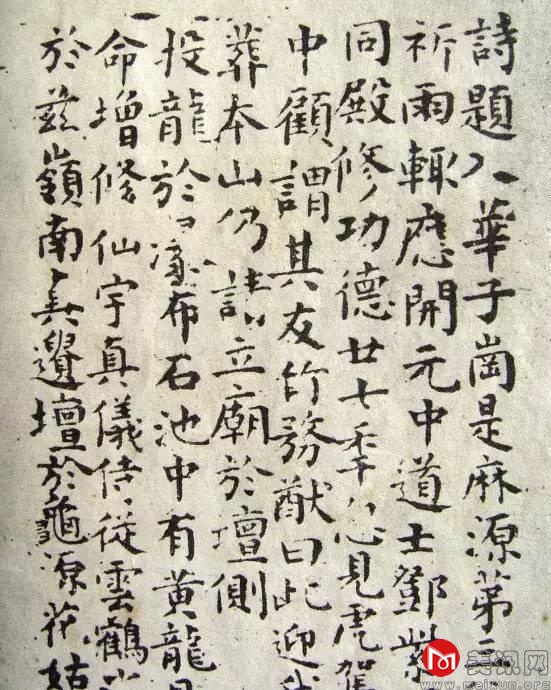 詩題入華子崗是麻源第三
祈雨輒應開元中道士鄧紫
同殿修功德廿七秊忽見虎駕
中顧謂其友竹務猷曰此迎我
葬本山仍請立廟於壇側
投龍於瀑布石池中有黄龍見
命增修仙宇真儀侍從雲鶴
於兹嶺南真遺壇於龜源花姑
美讯网
www.meixun.org